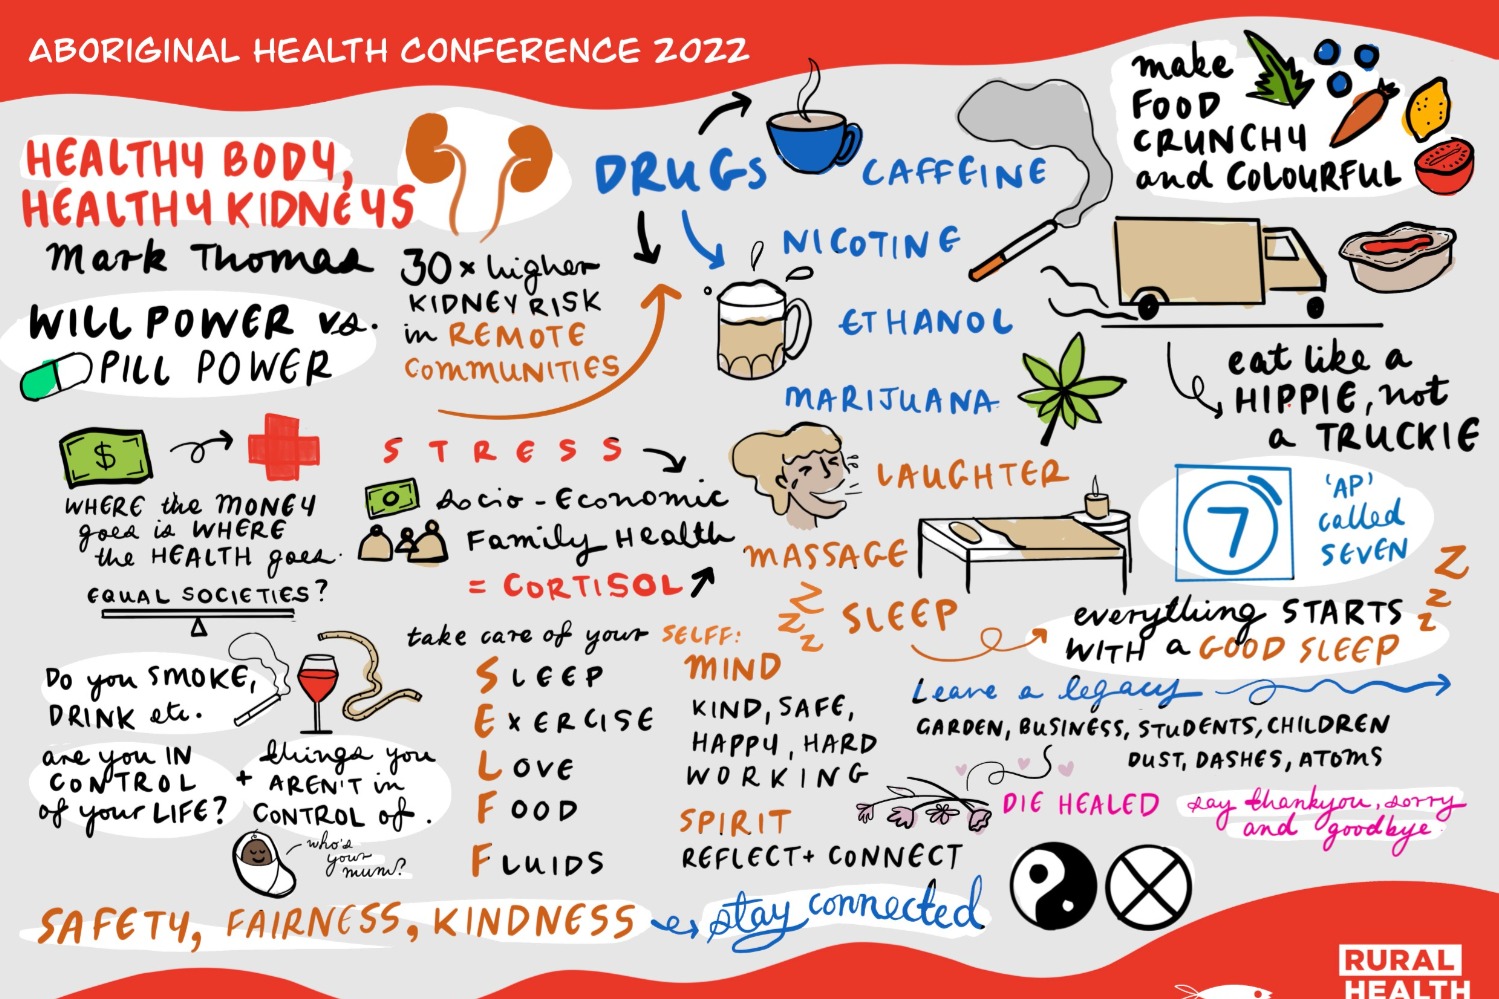 ABORIGINAL HEALTH CONFERENCE 2022
HEALTHY BODY,
HEALTHY KIDNEYS
Mark Thomas
WILL POWER vs.
PILL POWER
30x higher
KIDNEY RISK
in REMOTE
COMMUNITIES
$
WHERE the MONEY
goes is WHERE
the HEALTH goes.
EQUAL SOCIETIES?
STRESS
Socio-Economic
Family Health
= CORTISOL
Do you SMOKE,
DRINK etc.
are you IN
CONTROL
of your LIFE?
+
things you
AREN'T in
CONTROL of.
who's
your
mum?
take care of your SELFF:
SLEEP
EXERCISE
LOVE
FOOD
FLUIDS
MIND
KIND, SAFE,
HAPPY, HARD
WORKING
SPIRIT
REFLECT + CONNECT
DRUGS
CAFFEINE
NICOTINE
ETHANOL
MARIJUANA
LAUGHTER
MASSAGE
ZZZ
SLEEP
make
FOOD
CRUNCHY
and COLOURFUL
eat like a
HIPPIE, not
a TRUCKIE
7
'AP'
called
SEVEN
everything STARTS
WITH a GOOD SLEEP
ZZZ
Leave a legacy
GARDEN, BUSINESS, STUDENTS, CHILDREN
DUST, DASHES, ATOMS
DIE HEALED
say thankyou, sorry
and goodbye
SAFETY, FAIRNESS, KINDNESS
stay connected
RURAL
HEALTH